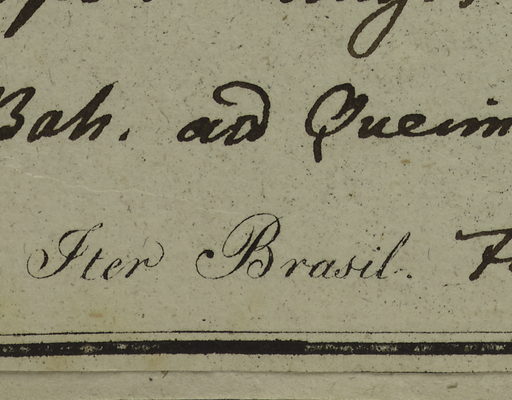 Bah. ad Queim
Iter Brasil.